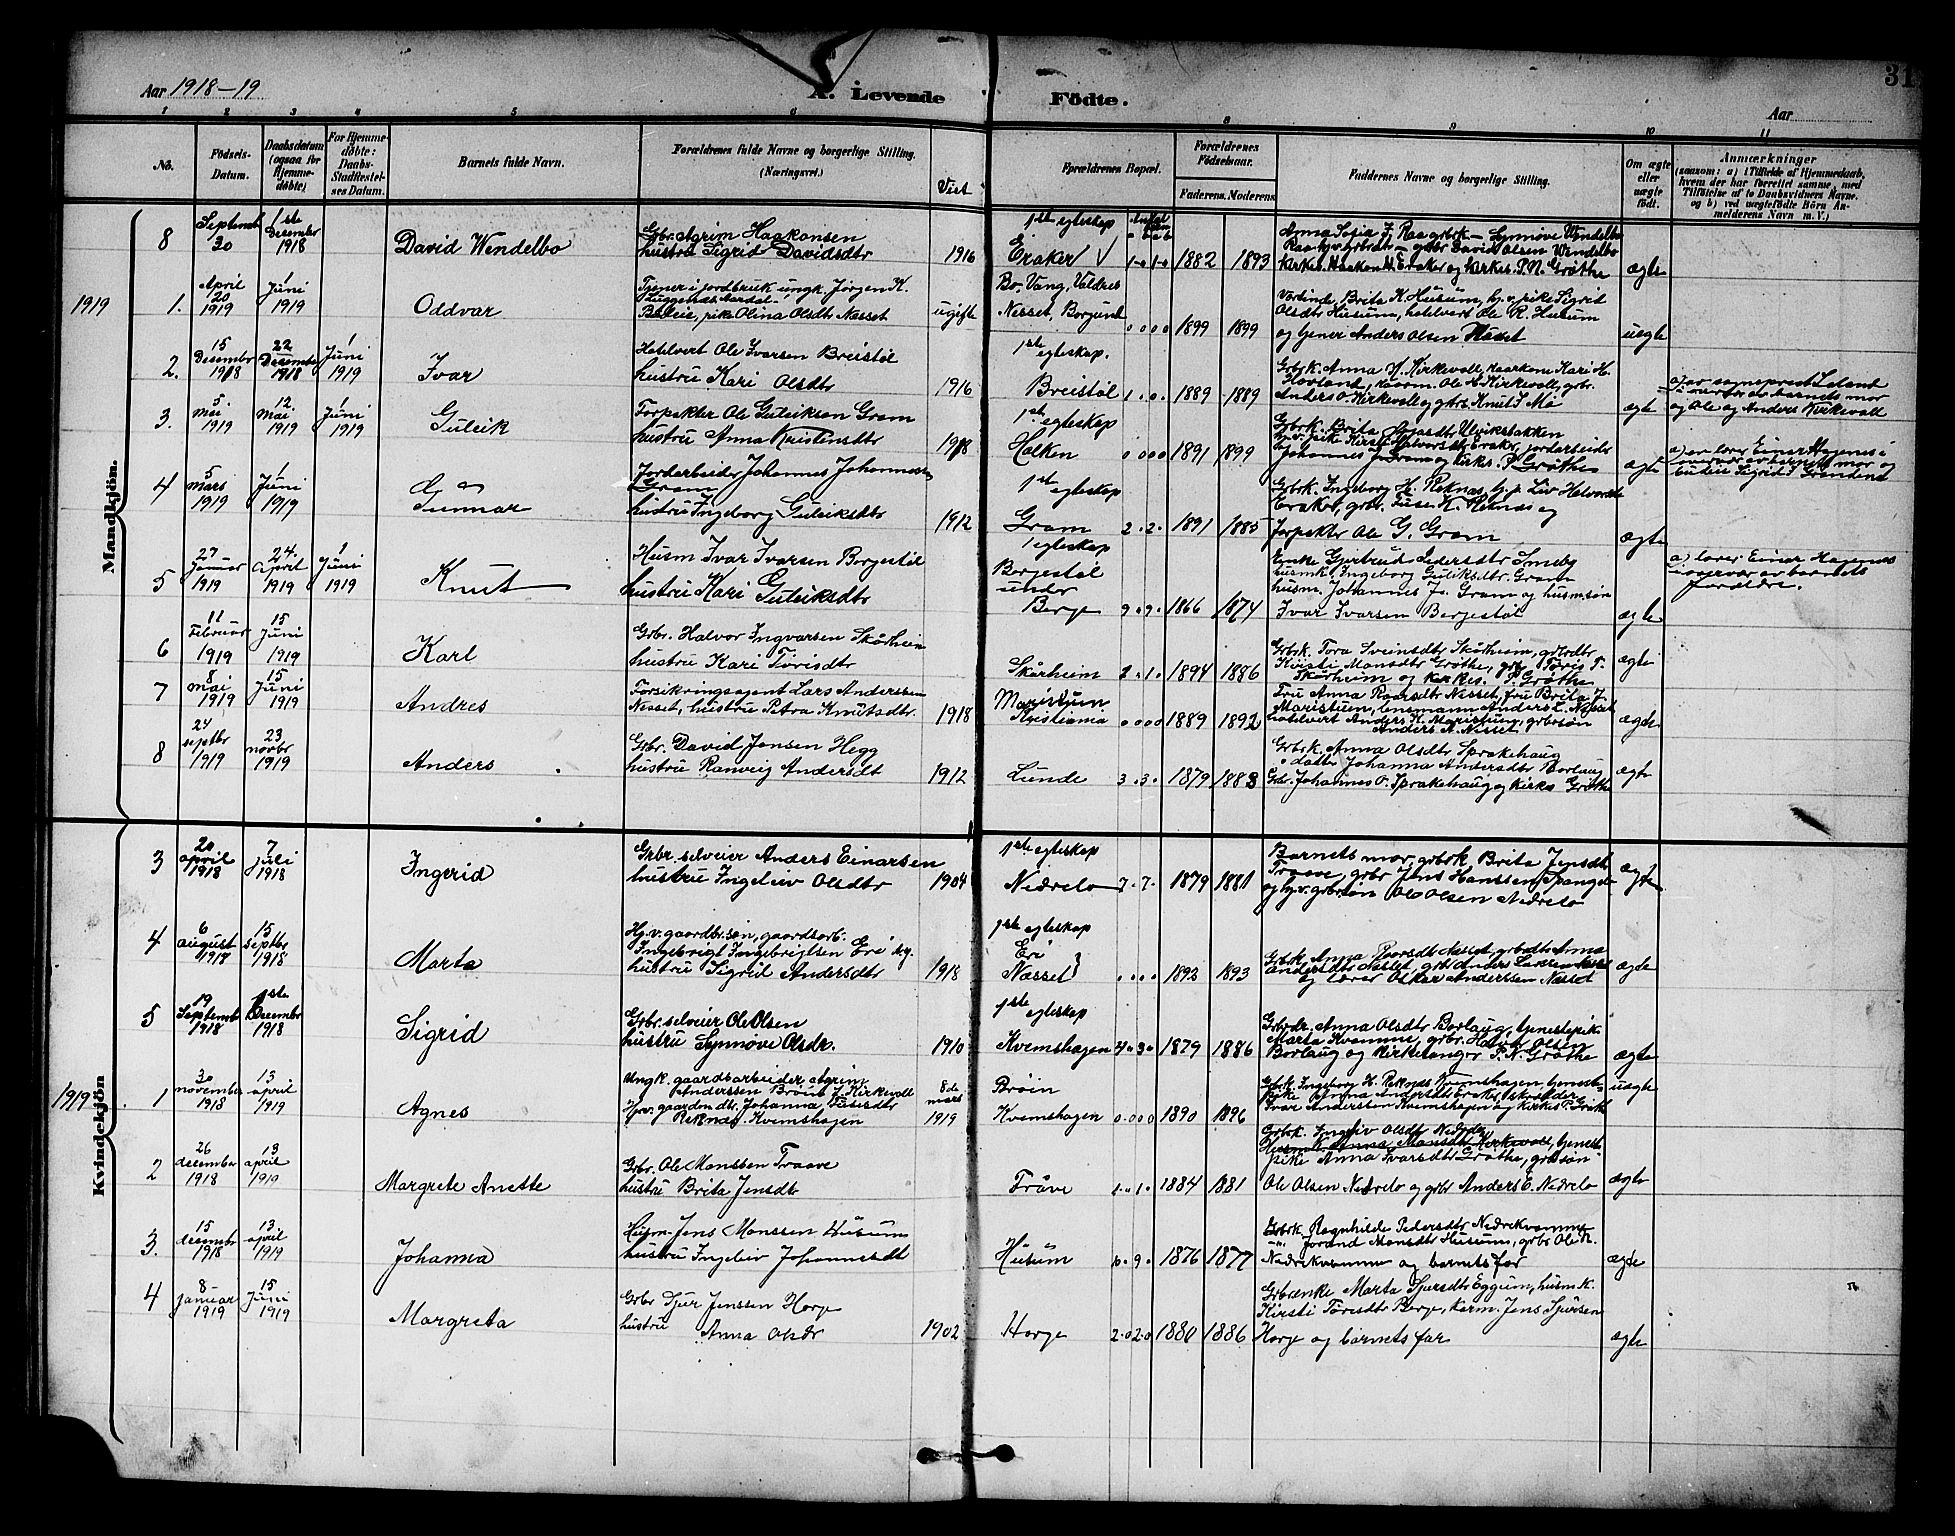 Aar 1918-19
A. Levende Födte.
Aar
31
1 2 3 4 5 6 8 9 10 11
No.
Födsels-Datum.
Daabsdatum (ogsaa for Hjemmedøbte)
For Hjemmedøbte: Daabs-Stadfestelses Datum.
Barnets fulde Navn.
Forældrenes fulde Navne og borgerlige Stilling. (Næringsvei.)
Viet
Forældrenes Bopæl.
Forældrenes Födselsaar.
Faderens. Moderens.
Faddernes Navne og borgerlige Stilling.
Om ægte eller uægte födt.
Anmærkninger
(saasom: a) i Tilfælde af Hjemmedaab,
hvem der har forrettet samme, med
Tilføielse af to Daabsvidners Navne.
og b) ved uægtefødte Börn An-
melderens Navn m. V.)
Mandkjön.
8 Septembr 30 1ste Desember 1918
David Wendelbo
Grbr. Agrim Haakonsen
hustru Sigrid Davidsdtr 1916
1ste egteskap
Eraker 1882 1893
Raa grbrk - Synnøve Wendelbo
grbr David Olsen Wendelbo
Kirkes. Haakon H. Eraker og Kirkes. P. N. Grøthe ægte
1919
1. April 20 1919 1 Juni 1919
Oddvar
Tjener i jordbruk ungk. Jørgen K.
pike Olina Olsdtr Nesset ugifte
Bo, Vang, Valdres
Nesset, Borgund 0 0 0 0 1899 1899
Brita K. Husum, hj.v. pike Sigrid
Olsdtr Husum, hotelvert Ole R. Husum
og tjener Anders Olsen uegte
2. 15 Desembr 1918 22 Desembr 1918 1 Juni 1919
Ivar
Hotelvert Ole Ivarsen Breistøl
hustru Kari Olsdtr 1916
1ste egteskap.
Breistøl 1. 0. 1889 1889
Grbrk. Anna Kirkevoll, Kari H.
Hovland, Ole H. Kirkevoll, grbr.
Anders O. Kirkevoll og grbr. Knut S. Mo ægte
a) av sogneprest Leland
i nærvær av barnets mor
og Ole og Anders Kirkevoll
3. 5 Mai 1919 12 Mai 1919 1 Juni 1919
Guleik
Forpakter Ole Guleiksen Gram
hustru Anna Kristensdtr 1918
1ste egteskap
Holken 0 0 0 0 1891 1899
Grbrk. Brita Ulviksbakken
hj.v. pike Kirsti Halvorsdtr Eraker, jordarbeider
Johannes J. Gram og Kirkes. P. Grøthe ægte
a) av lærer Einar Hegenes i
nærvær av barnets mor og
Sigrid
4 5 Mars 1919 1 Juni 1919
Gunnar
Jordarbeider Johannes Johannesen
Gram
hustru Ingeborg Guleiksdtr 1912
1ste egteskap
Gram 2. 2. 1891 1885
Grbrk. Ingeborg H. Reknæs, hj.v. Liv Halvorsdtr
Eraker, grbr. K. Reknæs og
forpakter Ole G. Gram ægte
5 27 Januar 1919 24. April 1919 1 Juni 1919
Knut
Husm Ivar Ivarsen Borgestøl
hustru Kari Guleiksdtr
1 egteskap
Borgestøl
under
Borge 9. 9. 1866 1874
Enke Gjertrud Pedersdtr
husmk. Ingeborg Guleiksdtr. Gram
husm. Johannes Js. Gram og husm.søn
Ivar Ivarsen Borgestøl ægte
a) lærer Einar Hegenes
i nærvær av barnets
forældre.
6 11 Februar 1919 15 Juni 1919
Karl
Grbr. Halvor Ingvarsen Skårheim
hustru Kari Torisdtr
Skårheim 2. 1. 1894 1886
Grbrk. Tora Sveinsdtr Skårheim, grbrdtr
Kirsti Monsdtr Grøthe, grbr. Toris T.
Skårheim og Kirkes. P. Grøthe ægte
7 8 mai 1919 15 Juni 1919
Andres
Forsikringsagent Lars Anderssen
Nesset, hustru Petra Knutsdtr. 1918
Maristuen
Kristiania 0 0 0 0 1889 1892
Fru Anna Roarsdtr Nesset, fru Brita J.
Maristuen, lensmann Anders L. Nesset
hotelvert Anders K. Maristuen, grbrsøn
Anders A. Nesset ægte
8 24 septbr 1919 23 novbr 1919
Anders
Grbr. David Jensen Hegg
hustru Ranveig Andersdt 1912
Lunde 3. 3. 1879 1883
Grbrk. Anna Olsdtr Sprakehaug
datter Johanna Andersdtr Borlaug
Grbr. Johannes P. Sprakehaug og Kirkes Grøthe ægte
Kvindekjön
3 20 april 1918 7 juli 1918
Ingerid
Grbr. selveier Anders Einarsen
hustru Ingeleiv Olsdtr 1904
1ste egteskap
Nedrelo 7. 7. 1879 1881
Barnets mor, grbrk Brita Jensdtr
Traave, grbr Jens Hanssen Spangelo
og hj.v. grbrsøn Ole Olsen Nedrelo ægte
4 6 august 1918 15 septbr 1918
Marta
Hj.v. gaardbr.søn, gaardsarb.
Ingebrigt Ingebrigtsen Eri og
hustru Sigrid Andersdtr 1918
1ste egteskap
Eri
Nesset 1892 1893
Grbrk. Anna Roarsdtr Nesset, grbrdtr Anna
Andersdtr Nesset, grbr Anders Larssen Nesset
og lærer Oskar Anderssen Nesset ægte
5 19 Septembr 1918 1ste Decembr 1918
Sigrid
Grbr. selveier Ole Olsen
hustru Synnøve Olsdr. 1910
1ste egteskap
Kvemshagen 4. 3. 1879 1886
Grbrdr. Anna Olsdtr Borlaug, tjenestepik
Marta Kvamme, grbr. Halvor Olsen
Borlaug og Kirkesanger P. N. Grøthe ægte
1919
1 30 november 1918 13 april 1919
Agnes
Ungk. gaardsarbeider Agrim
Anderssen Brøin Kirkevoll
Hjv. gaardmdtr. Johanna
Reknæs Kvemshagen
8de mars 1919
Brøin
Kvemshagen 0. 0 0 0 1890 1896
Grbrk. Ingeborg H. Reknæs Kvemshagen, tjeneste-
pike Anna Andersdtr Eraker,
Ivar Anderssen Kvemshagen og Kirkes P. Grøthe uægte
2 26 desember 1918 13 april 1919
Margrete Anette
Grbr. Ole Monssen Traave
hustru Brita Jensdtr
Tråve 1. 1. 1884 1881
Grbrk. Ingeleiv Olsdtr Nedrelo,
Anna Monsdtr Kirkevoll, tjeneste
pike Anna Ivarsdtr Grøthe, grbrsøn
Ole Olsen Nedrelo og grbr Anders E. Nedrelo ægte
3. 15 desembr 1918 13 april 1919
Johanna
Husm. Jens Monssen Husum
hustru Ingeleiv Johannesdt
Husum 9. 1876 1877
Grbrk. Ragnhilde Pedersdtr Nedrekvamme
Jorand Monsdtr Husum, grbr Ole R.
Nedrekvamme og barnets far ægte
4 8 januar 1919 15 Juni 1919
Margreta
Grbr Sjur Jenssen Horge
hustru Anna Olsdr 1902
Horge 2. 0 2. 0 1880 1886
Grbrenke Marta Sjursdtr Eggum, husm.k.
Kirsti Torisdtr Borge, Jens Sjursen
Horge og barnets far ægte